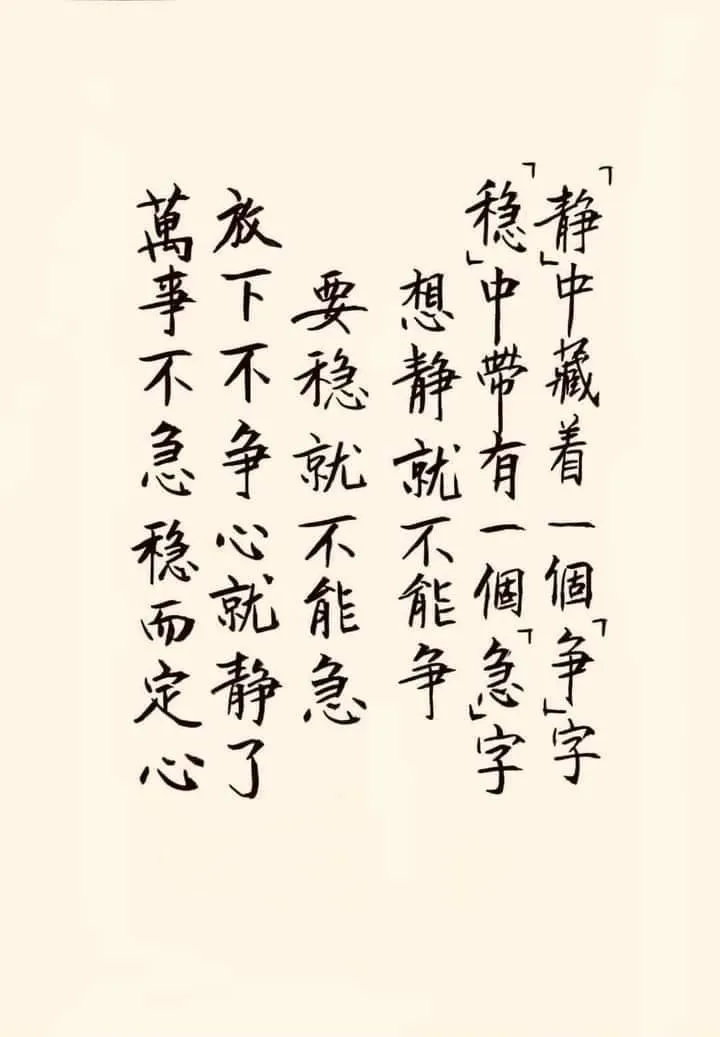 「静」中藏着一個「争」字
「稳」中帶有一個「急」字
想静就不能争
要稳就不能急
放下不争心就静了
萬事不急稳而定心